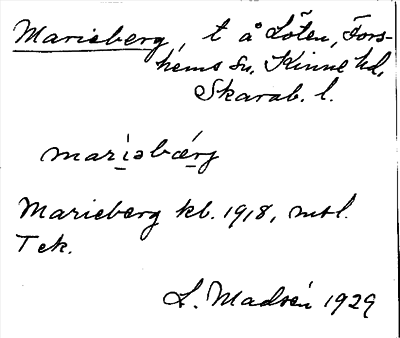 Marieberg, t å Löten, Fors-
hems sn. Kinne hd.
Skarab. l.
mariəbærg
Marieberg kb. 1918, mtl.
Tek.
L. Madsén 1929